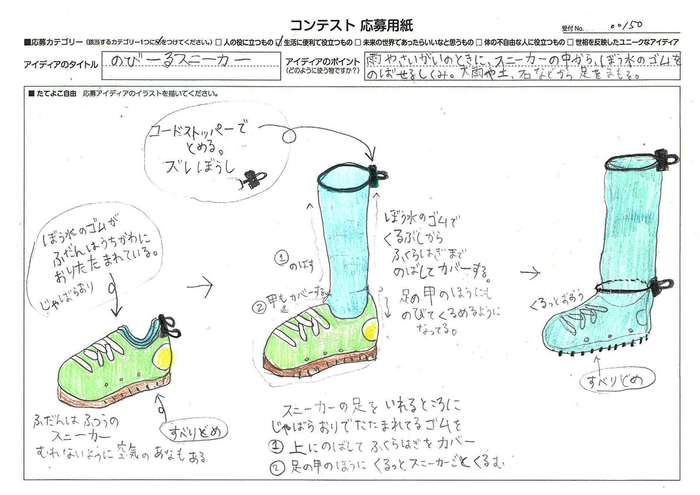 コンテスト 応募用紙
受付No. 00150
■応募カテゴリー(該当するカテゴリー1つに☑をつけてください。) □人の役に立つもの ☑生活に便利で役立つもの □未来の世界であったらいいなと思うもの □体の不自由な人に役立つもの □世相を反映したユニークなアイディア
アイディアのタイトル
のびーるスニーカー
アイディアのポイント
(どのように使う物ですか?)
雨やさいがいのときに、スニーカーの中から、ぼう水のゴムを
のばせるしくみ。大雨や土、石などから足をまもる。
■たてよこ自由 応募アイディアのイラストを描いてください。
コードストッパーで
とめる。
ズレぼうし
ぼう水のゴムが
ふだんはうちがわに
おりたたまれている。
じゃばらおり
①のばす
②甲もカバーする
ぼう水のゴムで
くるぶしから
ふくらはぎまで
のばしてカバーする。
足の甲のほうにも
のびてくるめるように
なってる。
くるっとおおう
すべりどめ
すべりどめ
ふだんはふつうの
スニーカー
むれないように空気のあなもある
スニーカーの足をいれるところに
じゃばらおりでたたまれてるゴムを
①上にのばしてふくらはぎをカバー
②足の甲のほうにくるっとスニーカーごとくるむ